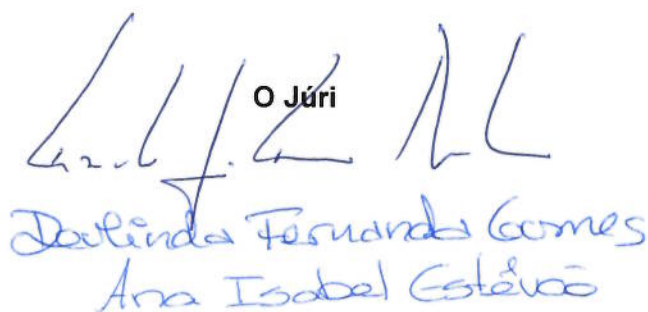 O Júri
Dorlinda Fernanda Gomes
Ana Isabel Estêvão